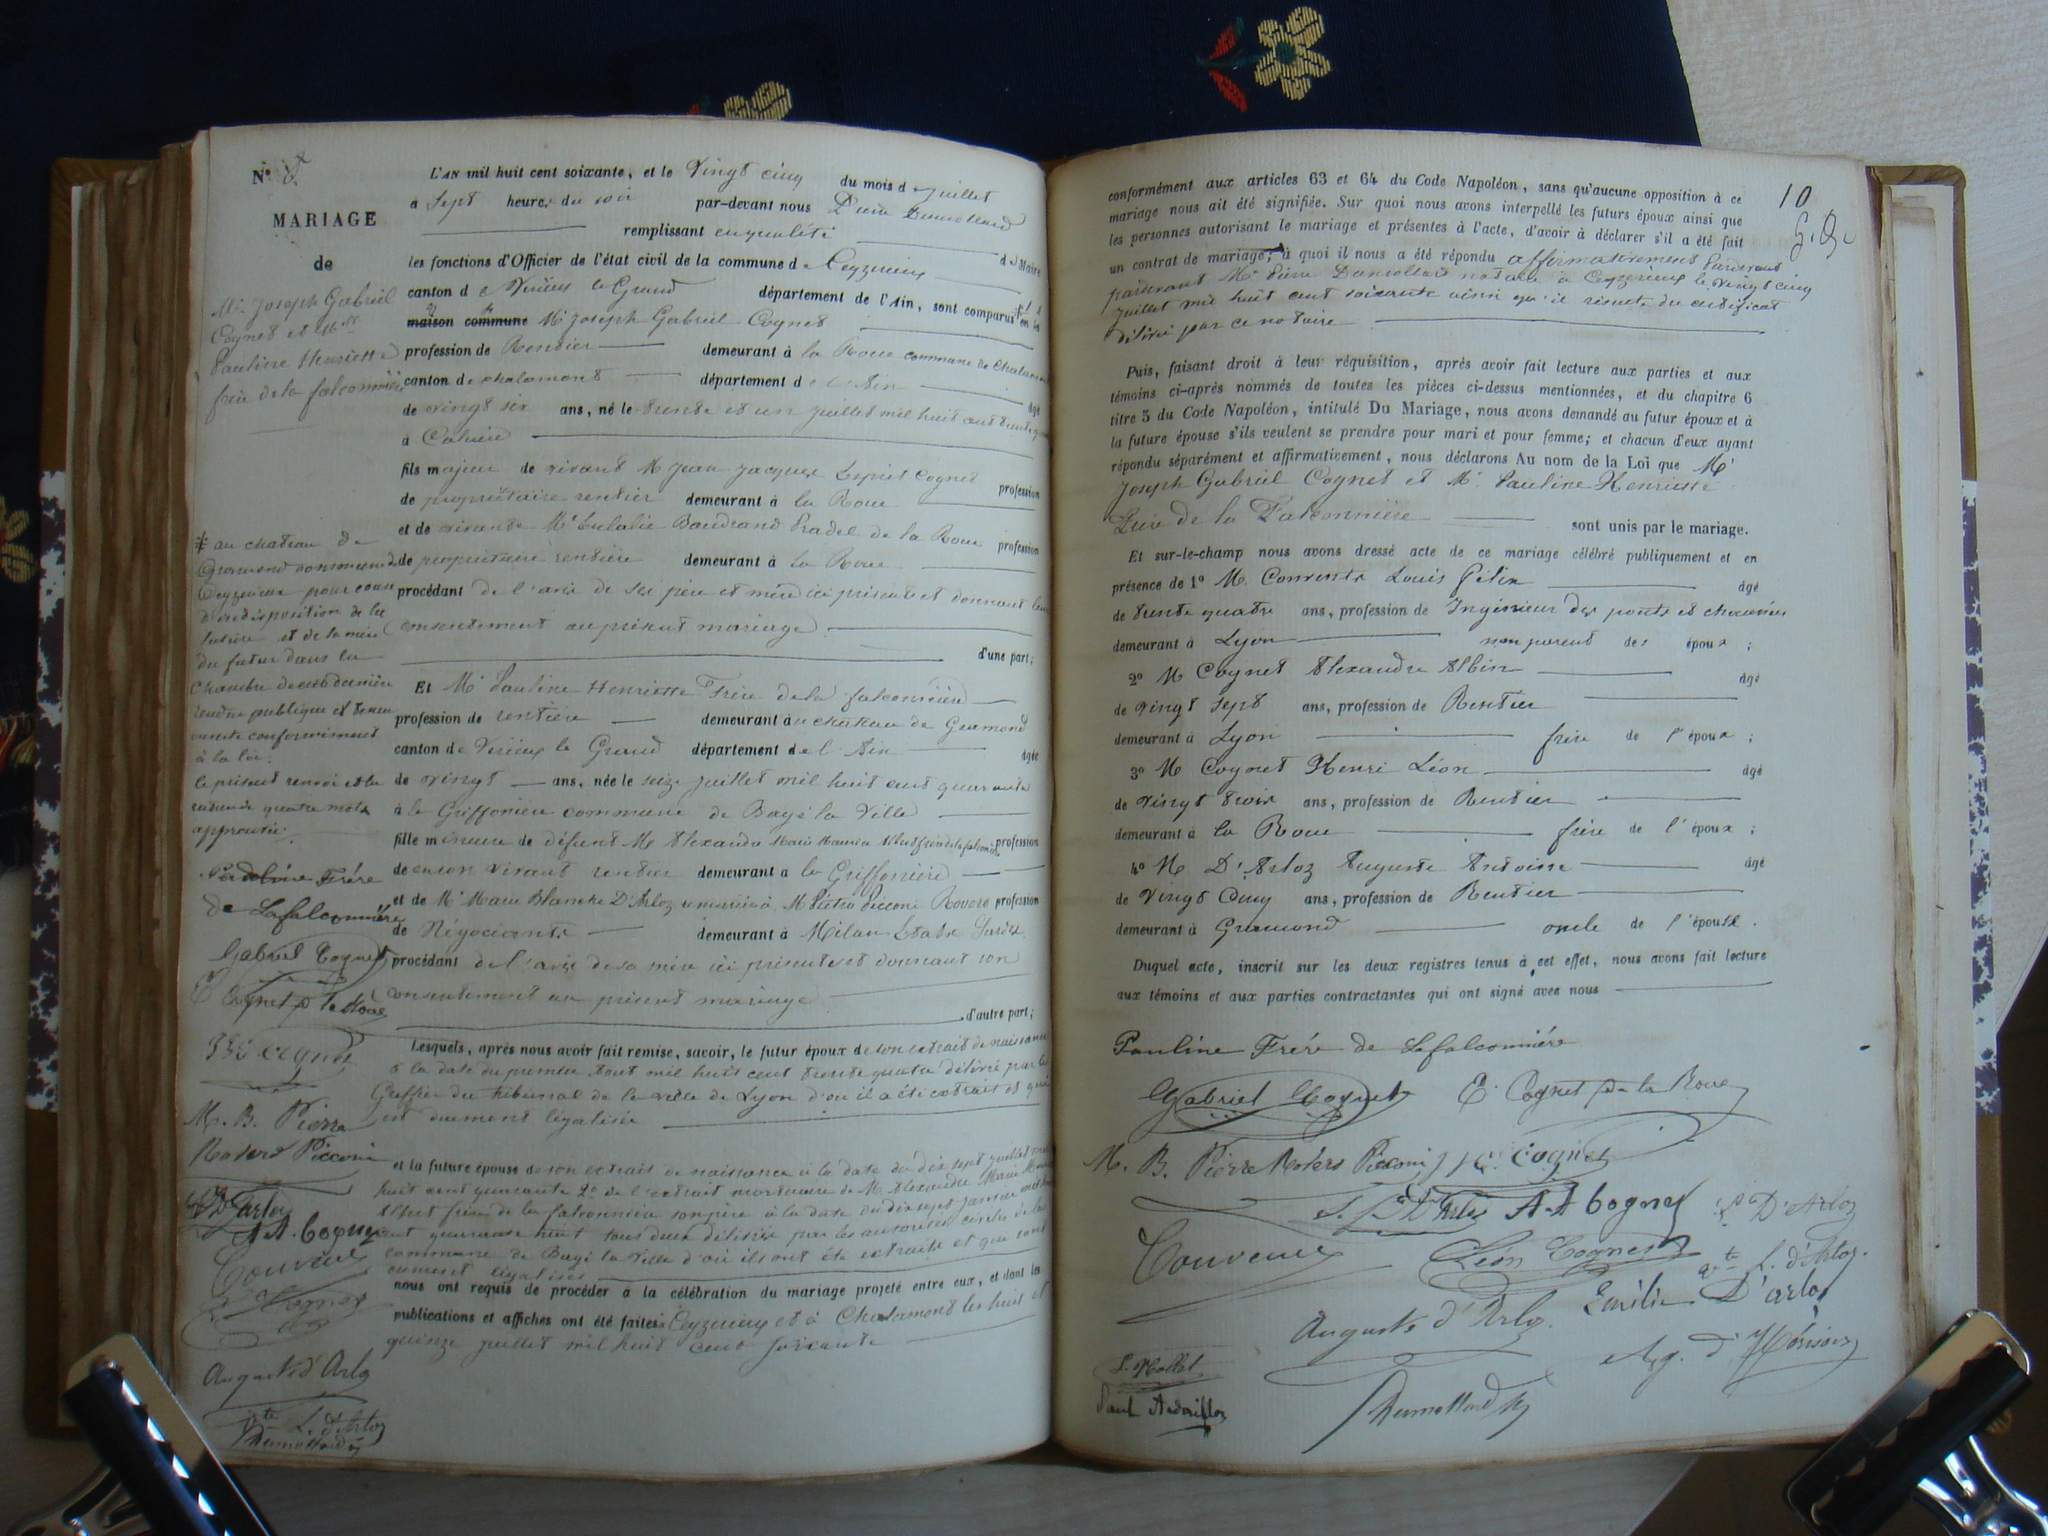 N°
MARIAGE
de
Mr Joseph Gabriel
Cognet et Mlle
Pauline Henriette
frère de la falconnière
* au chateau de
Gramond commune de
Ceyzerieu pour cause
d'indisposition de la
future et de la mère
du futur dans la
chambre de cette dernière
rendue publique et tenue
ouverte conformément
à la loi.
le présent renvoi et la
radiation de quatre mots
approuvée.
Pauline Frére
de Lafalconniére
Gabriel Cognet
E Cognet de la Roue
Cognet
M. B. Pierre
Rovere Picconi
D'arloz
A-A. Cogney
Couvenx
L. Cognet
Auguste d'Arloz
L. d'Arloz
Dumollard
L'AN mil huit cent soixante, et le Vingt cinq du mois d e juillet
à Sept heures du soir par-devant nous Pierre Dumollard
remplissant en qualité d e Maire
les fonctions d'Officier de l'état civil de la commune d e Ceyzerieu
canton d e Virieu le Grand département de l'Ain, sont comparus * en la
maison commune Mr Joseph Gabriel Cognet
profession de Rentier demeurant à la Roue commune de Chalamont
canton de chalamont département d e l'Ain âgé
de vingt six ans, né le trente et un juillet mil huit cent trente quatre
à Caluire
fils majeur de vivant M Jean Jacques Esprit Cognet profession
de propriétaire rentier demeurant à la Roue
et de vivante Me Eulalie Baudrand Pradel de la Roue profession
de propriétaire rentière demeurant à la Roue
procédant de l'avis de ses père et mère ici présents et donnant leur
consentement au présent mariage
d'une part;
Et Mlle Pauline Henriette Frère de la falconnière
profession de rentière demeurant au chateau de Gramond
canton de Virieu le Grand département de l'Ain âgée
de vingt ans, née le seize juillet mil huit cent quarante
à la Griffonière commune de Bagé la Ville
fille mineure de défunt Mr Alexandre Marie Maurice Albert frère de la falconnière profession
de en son vivant rentier demeurant à la Griffonière
et de Me Marie Blanche D'Arloz remariée à M Pietro Picconi Rovere profession
de Négociante demeurant à Milan Etats Sardes
procédant de l'avis de sa mère ici présente et donnant son
consentement au présent mariage
d'autre part;
Lesquels, après nous avoir fait remise, savoir, le futur époux de son extrait de naissance
à la date du premier Aout mil huit cent trente quatre délivré par le
Greffier du tribunal de la ville de Lyon d'où il a été extrait et qui
est dument légalisé
et la future épouse de son extrait de naissance à la date du dix sept juillet mil
huit cent quarante 2° de l'extrait mortuaire de M Alexandre Marie Maurice
Albert frère de la falconnière son père à la date du dix sept janvier mil huit
cent quarante huit tous deux délivrés par les autorités civiles de la
commune de Bagé la Ville d'où ils ont été extraits et qui sont
dument légalisés
nous ont requis de procéder à la célébration du mariage projeté entre eux, et dont les
publications et affiches ont été faites à Ceyzerieu et à Chalamont les huit et
quinze juillet mil huit cent soixante
10
conformément aux articles 63 et 64 du Code Napoléon, sans qu'aucune opposition à ce
mariage nous ait été signifiée. Sur quoi nous avons interpellé les futurs époux ainsi que
les personnes autorisant le mariage et présentes à l'acte, d'avoir à déclarer s'il a été fait
un contrat de mariage; à quoi il nous a été répondu affirmativement
pardevant Me Pierre Dumollard notaire à Ceyzerieu le vingt cinq
juillet mil huit cent soixante ainsi qu'il résulte du certificat
délivré par ce notaire
Puis, faisant droit à leur réquisition, après avoir fait lecture aux parties et aux
témoins ci-après nommés de toutes les pièces ci-dessus mentionnées, et du chapitre 6
titre 5 du Code Napoléon, intitulé Du Mariage, nous avons demandé au futur époux et à
la future épouse s'ils veulent se prendre pour mari et pour femme; et chacun d'eux ayant
répondu séparément et affirmativement, nous déclarons Au nom de la Loi que Mr
Joseph Gabriel Cognet et Mlle Pauline Henriette
Frère de la Falconnière sont unis par le mariage.
Et sur-le-champ nous avons dressé acte de ce mariage célébré publiquement et en
présence de 1° M. Couvenx Louis Félix âgé
de trente quatre ans, profession de Ingénieur des ponts et chaussées
demeurant à Lyon non parent des époux ;
2° M Cognet Alexandre Albin âgé
de vingt sept ans, profession de Rentier
demeurant à Lyon frère de l'époux ;
3° M Cognet Henri Léon âgé
de vingt trois ans, profession de Rentier
demeurant à la Roue frère de l'époux ;
4° M D'Arloz Auguste Antoine âgé
de Vingt Cinq ans, profession de Rentier
demeurant à Gramond oncle de l'épouse.
Duquel acte, inscrit sur les deux registres tenus à cet effet, nous avons fait lecture
aux témoins et aux parties contractantes qui ont signé avec nous
Pauline Frére de Lafalconniére
Gabriel Cognet E. Cognet de la Roue
M. B. Pierre Rovere Picconi Cognet
D'Arloz A-A Cogney D'Arloz
Couvenx Léon Cognet L. d'Arloz.
Auguste d'Arloz. Emilie D'arloz
L. Mollet
Paul Dumollard